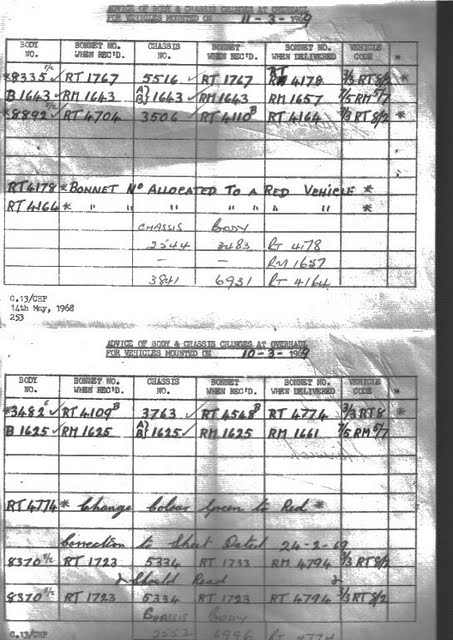 ADVICE OF BODY & CHASSIS CHANGES AT OVERHAUL
FOR VEHICLES MOUNTED ON 11-3-1969
BODY NO. BONNET NO. WHEN REC'D. CHASSIS NO. BONNET WHEN REC'D. BONNET NO. WHEN DELIVERED VEHICLE CODE *
*8335 ✓ RT 1767 5516 ✓ RT 1767 RT 4178 7/3 RT 8/2 *
B 1643 ✓ RM 1643 A) B) 1643 ✓ RM 1643 RM 1657 7/5 RM 5/7
*8892 ✓ RT 4704 3506 ✓ RT 4110 B RT 4164 7/3 RT 8/2 *
RT 4178 * BONNET No ALLOCATED TO A RED VEHICLE *
RT 4164 * " " " " " " " *
CHASSIS BODY
2544 3483 RT 4178
— — RM 1657
3841 6931 RT 4164
C.13/CHP
14th May, 1968
253
ADVICE OF BODY & CHASSIS CHANGES AT OVERHAUL
FOR VEHICLES MOUNTED ON 10-3-1969
BODY NO. BONNET NO. WHEN REC'D. CHASSIS NO. BONNET WHEN REC'D. BONNET NO. WHEN DELIVERED VEHICLE CODE *
*3482 ✓ RT 4109 B 3763 ✓ RT 4568 B RT 4774 3/3 RT 8 *
B 1625 ✓ RM 1625 A) B) 1625 ✓ RM 1625 RM 1661 7/5 RM 5/7
RT 4774 * Change Colour Green to Red *
Correction to Sheet Dated 24-2-69
8370 RT 1723 5334 RT 1733 RM 4794 7/3 RT 8/2
Should Read
8370 RT 1723 5334 RT 1723 RT 4794 3/3 RT 8/2
CHASSIS BODY
2553 6996 RT 4774
C.13/CHP